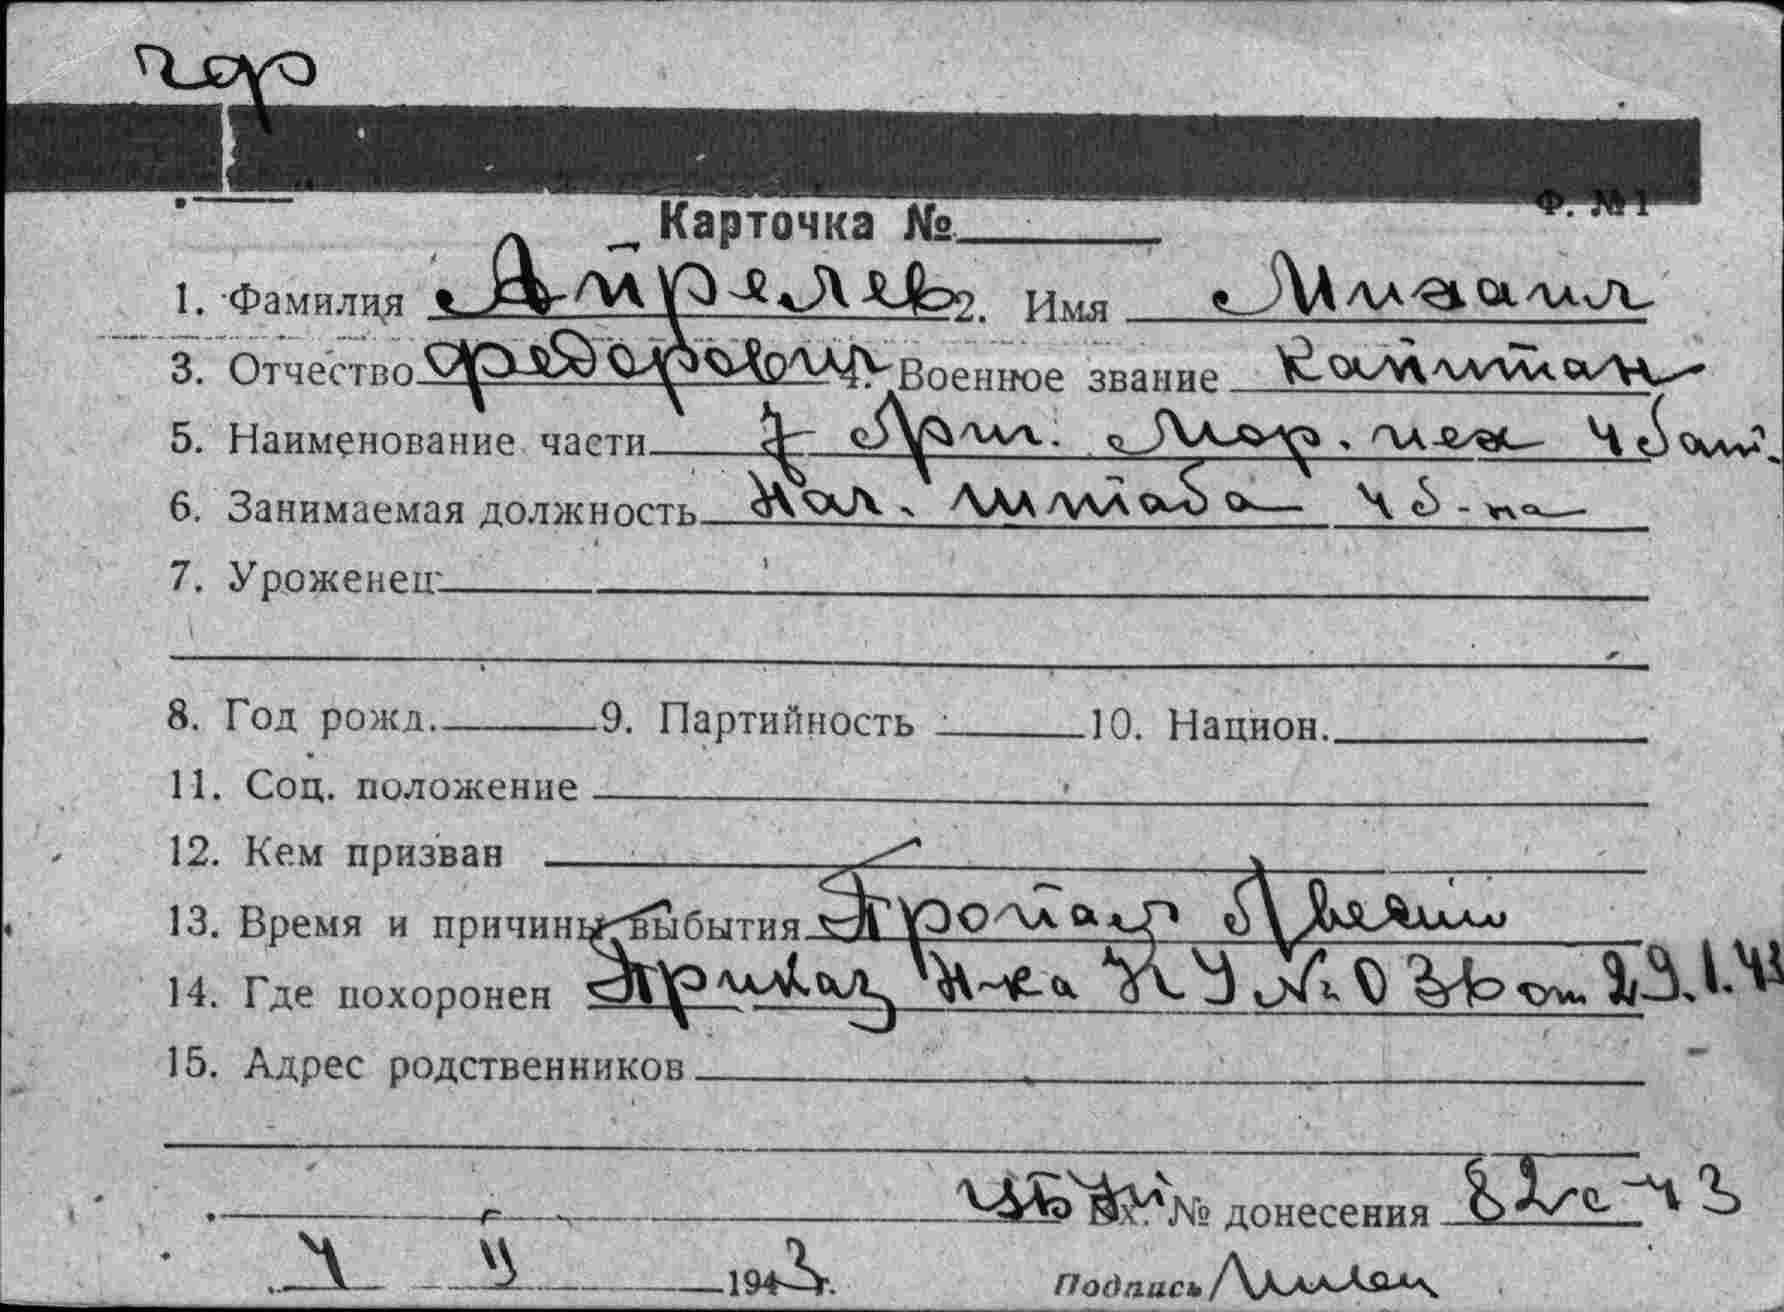 Ф. №1
Карточка №
1. Фамилия Апрелев 2. Имя Михаил
3. Отчество Федорович 4. Военное звание Капитан
5. Наименование части Арт. Мор. пех 4 бат.
6. Занимаемая должность Нач. штаба 4 б-на
7. Уроженец
8. Год рожд. 9. Партийность 10. Национ.
11. Соц. положение
12. Кем призван
13. Время и причины выбытия Пропал
14. Где похоронен Приказ Н-ка № 036 от 29.1.43
15. Адрес родственников
Вх. № донесения 82/с-43
4 1943 г.
Подпись